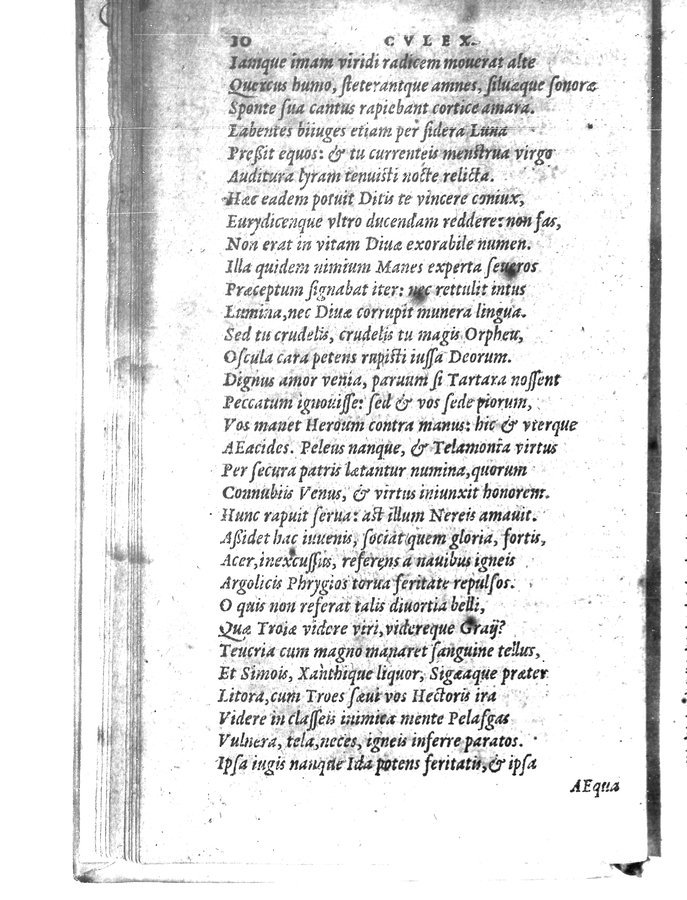 10 CVLEX.
Iamque imam viridi radicem mouerat alte
Quercus humo, ſteterantque amnes, ſiluæque ſonoræ
Sponte ſua cantus rapiebant cortice amara.
Labentes biiuges etiam per ſidera Luna
Preßit equos: & tu currenteis menſtrua virgo
Auditura lyram tenuiſti nocte relicta.
Hæc eadem potuit Ditis te vincere coniux,
Eurydicenque vltro ducendam reddere: non fas,
Non erat in vitam Diuæ exorabile numen.
Illa quidem nimium Manes experta ſeueros
Præceptum ſignabat iter: nec rettulit intus
Lumina, nec Diuæ corrupit munera lingua.
Sed tu crudelis, crudelis tu magis Orpheu,
Oſcula cara petens rupiſti iuſſa Deorum.
Dignus amor venia, paruum ſi Tartara noſſent
Peccatum ignouiſſe: ſed & vos ſede piorum,
Vos manet Heroum contra manus: hic & vterque
AEacides. Peleus nanque, & Telamonia virtus
Per ſecura patris lætantur numina, quorum
Connubiis Venus, & virtus iniunxit honorem.
Hunc rapuit ſerua: aſt illum Nereis amauit.
Aßidet hac iuuenis, ſociat quem gloria, fortis,
Acer, inexcuſſus, referens a nauibus igneis
Argolicis Phrygios torua feritate repulſos.
O quis non referat talis diuortia belli,
Quæ Troiæ videre viri, videreque Graij?
Teucria cum magno manaret ſanguine tellus,
Et Simois, Xanthique liquor, Sigæaque præter
Litora, cum Troes ſæui vos Hectoris ira
Videre in claſſeis inimica mente Pelaſgas
Vulnera, tela, neces, igneis inferre paratos.
Ipſa iugis nanque Ida potens feritatis, & ipſa
AEqua